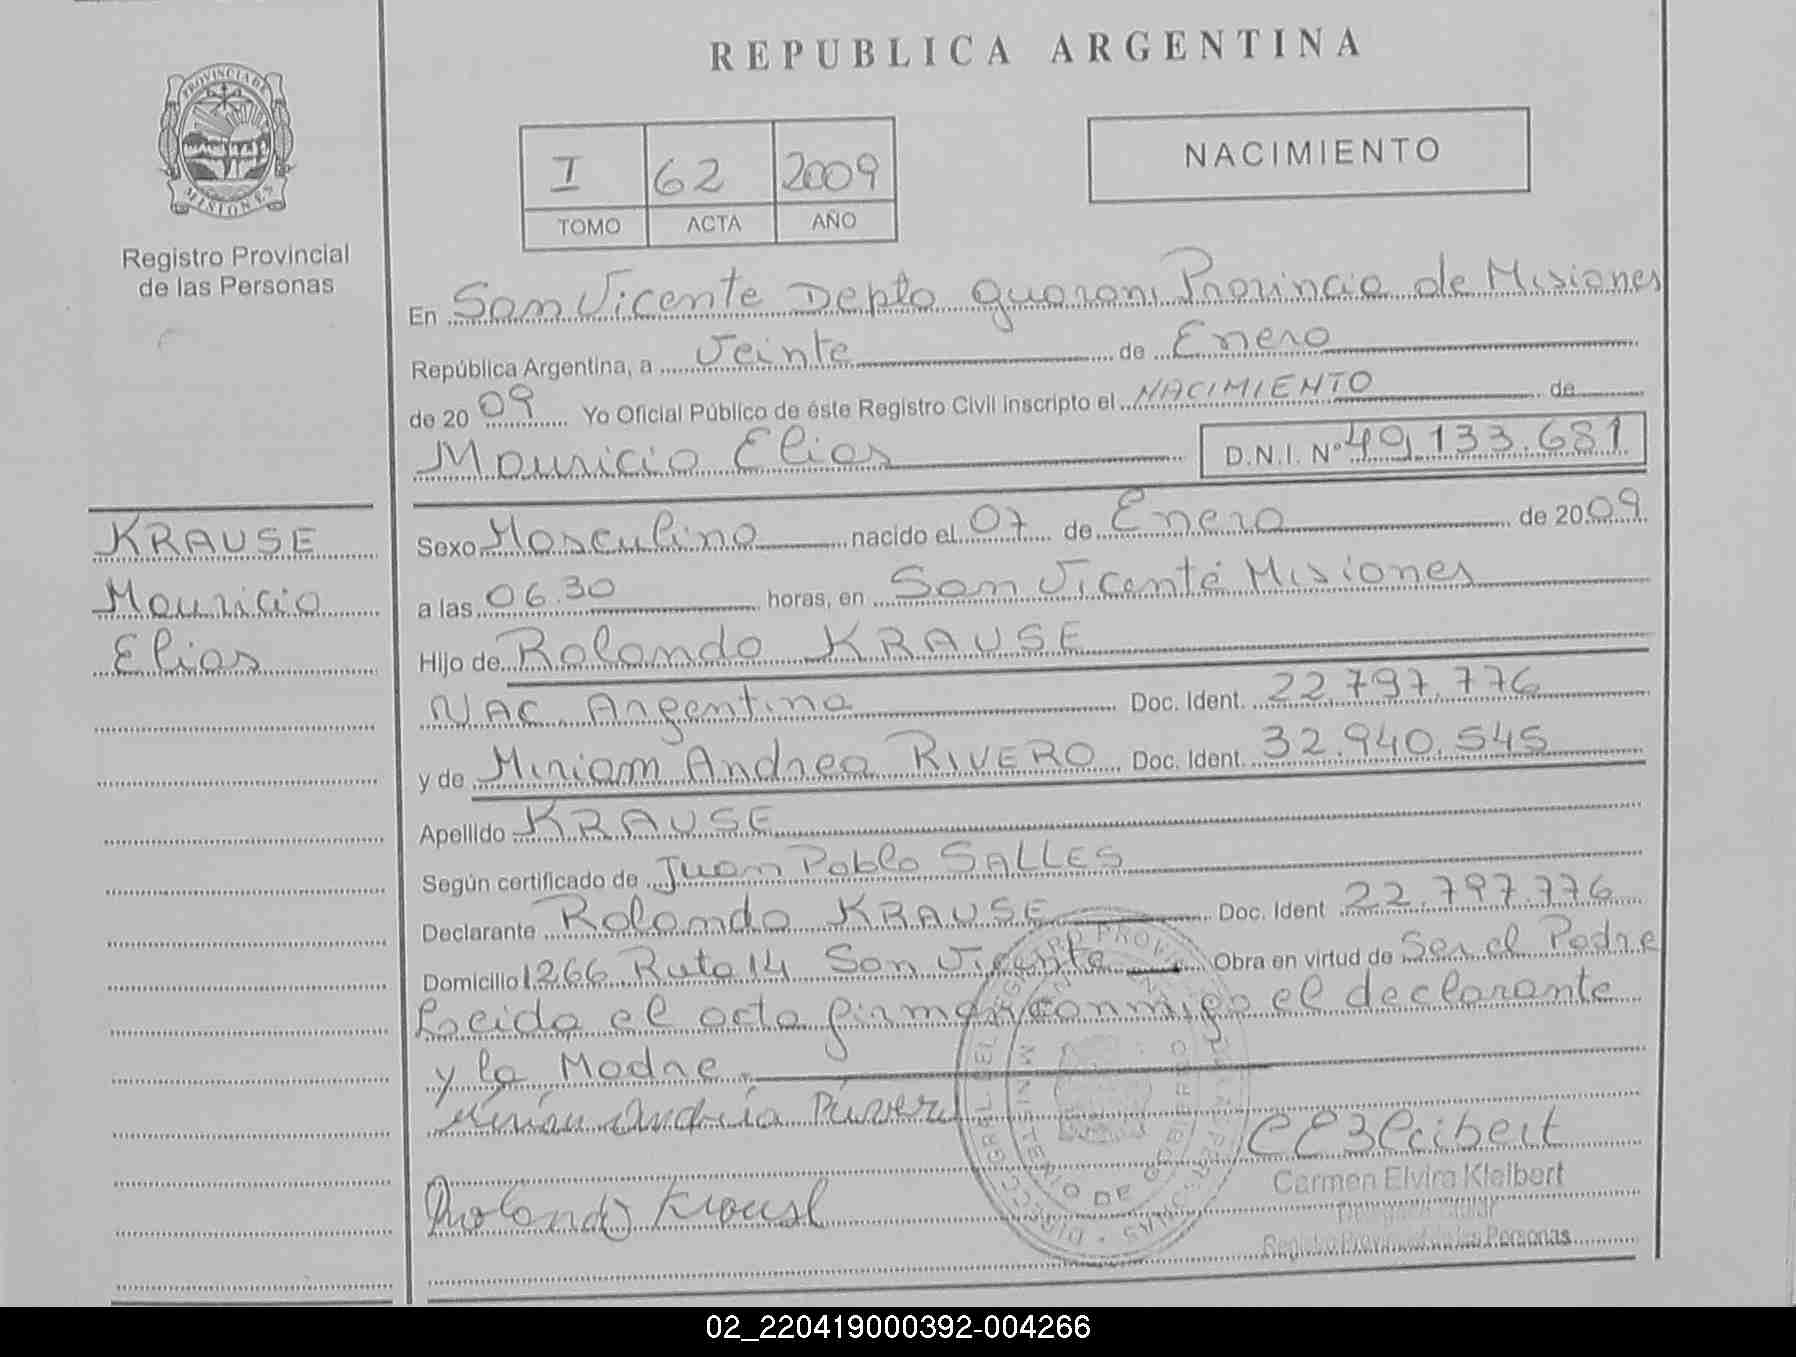 REPUBLICA ARGENTINA
PROVINCIA DE
MISIONES
Registro Provincial
de las Personas
I 62 2009
TOMO ACTA AÑO
NACIMIENTO
En San Vicente Depto guarani Provincia de Misiones
República Argentina, a Veinte de Enero
de 2009 Yo Oficial Público de éste Registro Civil inscripto el NACIMIENTO de
Mauricio Elias D.N.I. Nº 49.133.681
KRAUSE
Mauricio
Elias
Sexo Masculino nacido el 07 de Enero de 2009
a las 06.30 horas, en San Vicente Misiones
Hijo de Rolando KRAUSE
NAC Argentina Doc. Ident. 22.797.776
y de Miriam Andrea RIVERO Doc. Ident. 32.940.545
Apellido KRAUSE
Según certificado de Juan Pablo SALLES
Declarante Rolando KRAUSE Doc. Ident 22.797.776
Domicilio 1266 Ruta 14 San Vicente Obra en virtud de Ser el Padre
Leida el acta firman conmigo el declarante
y la Madre
Rolando Krause
Carmen Elvira Kleibert
Registro Provincial de las Personas
MINISTERIO DE GOBIERNO
02_220419000392-004266